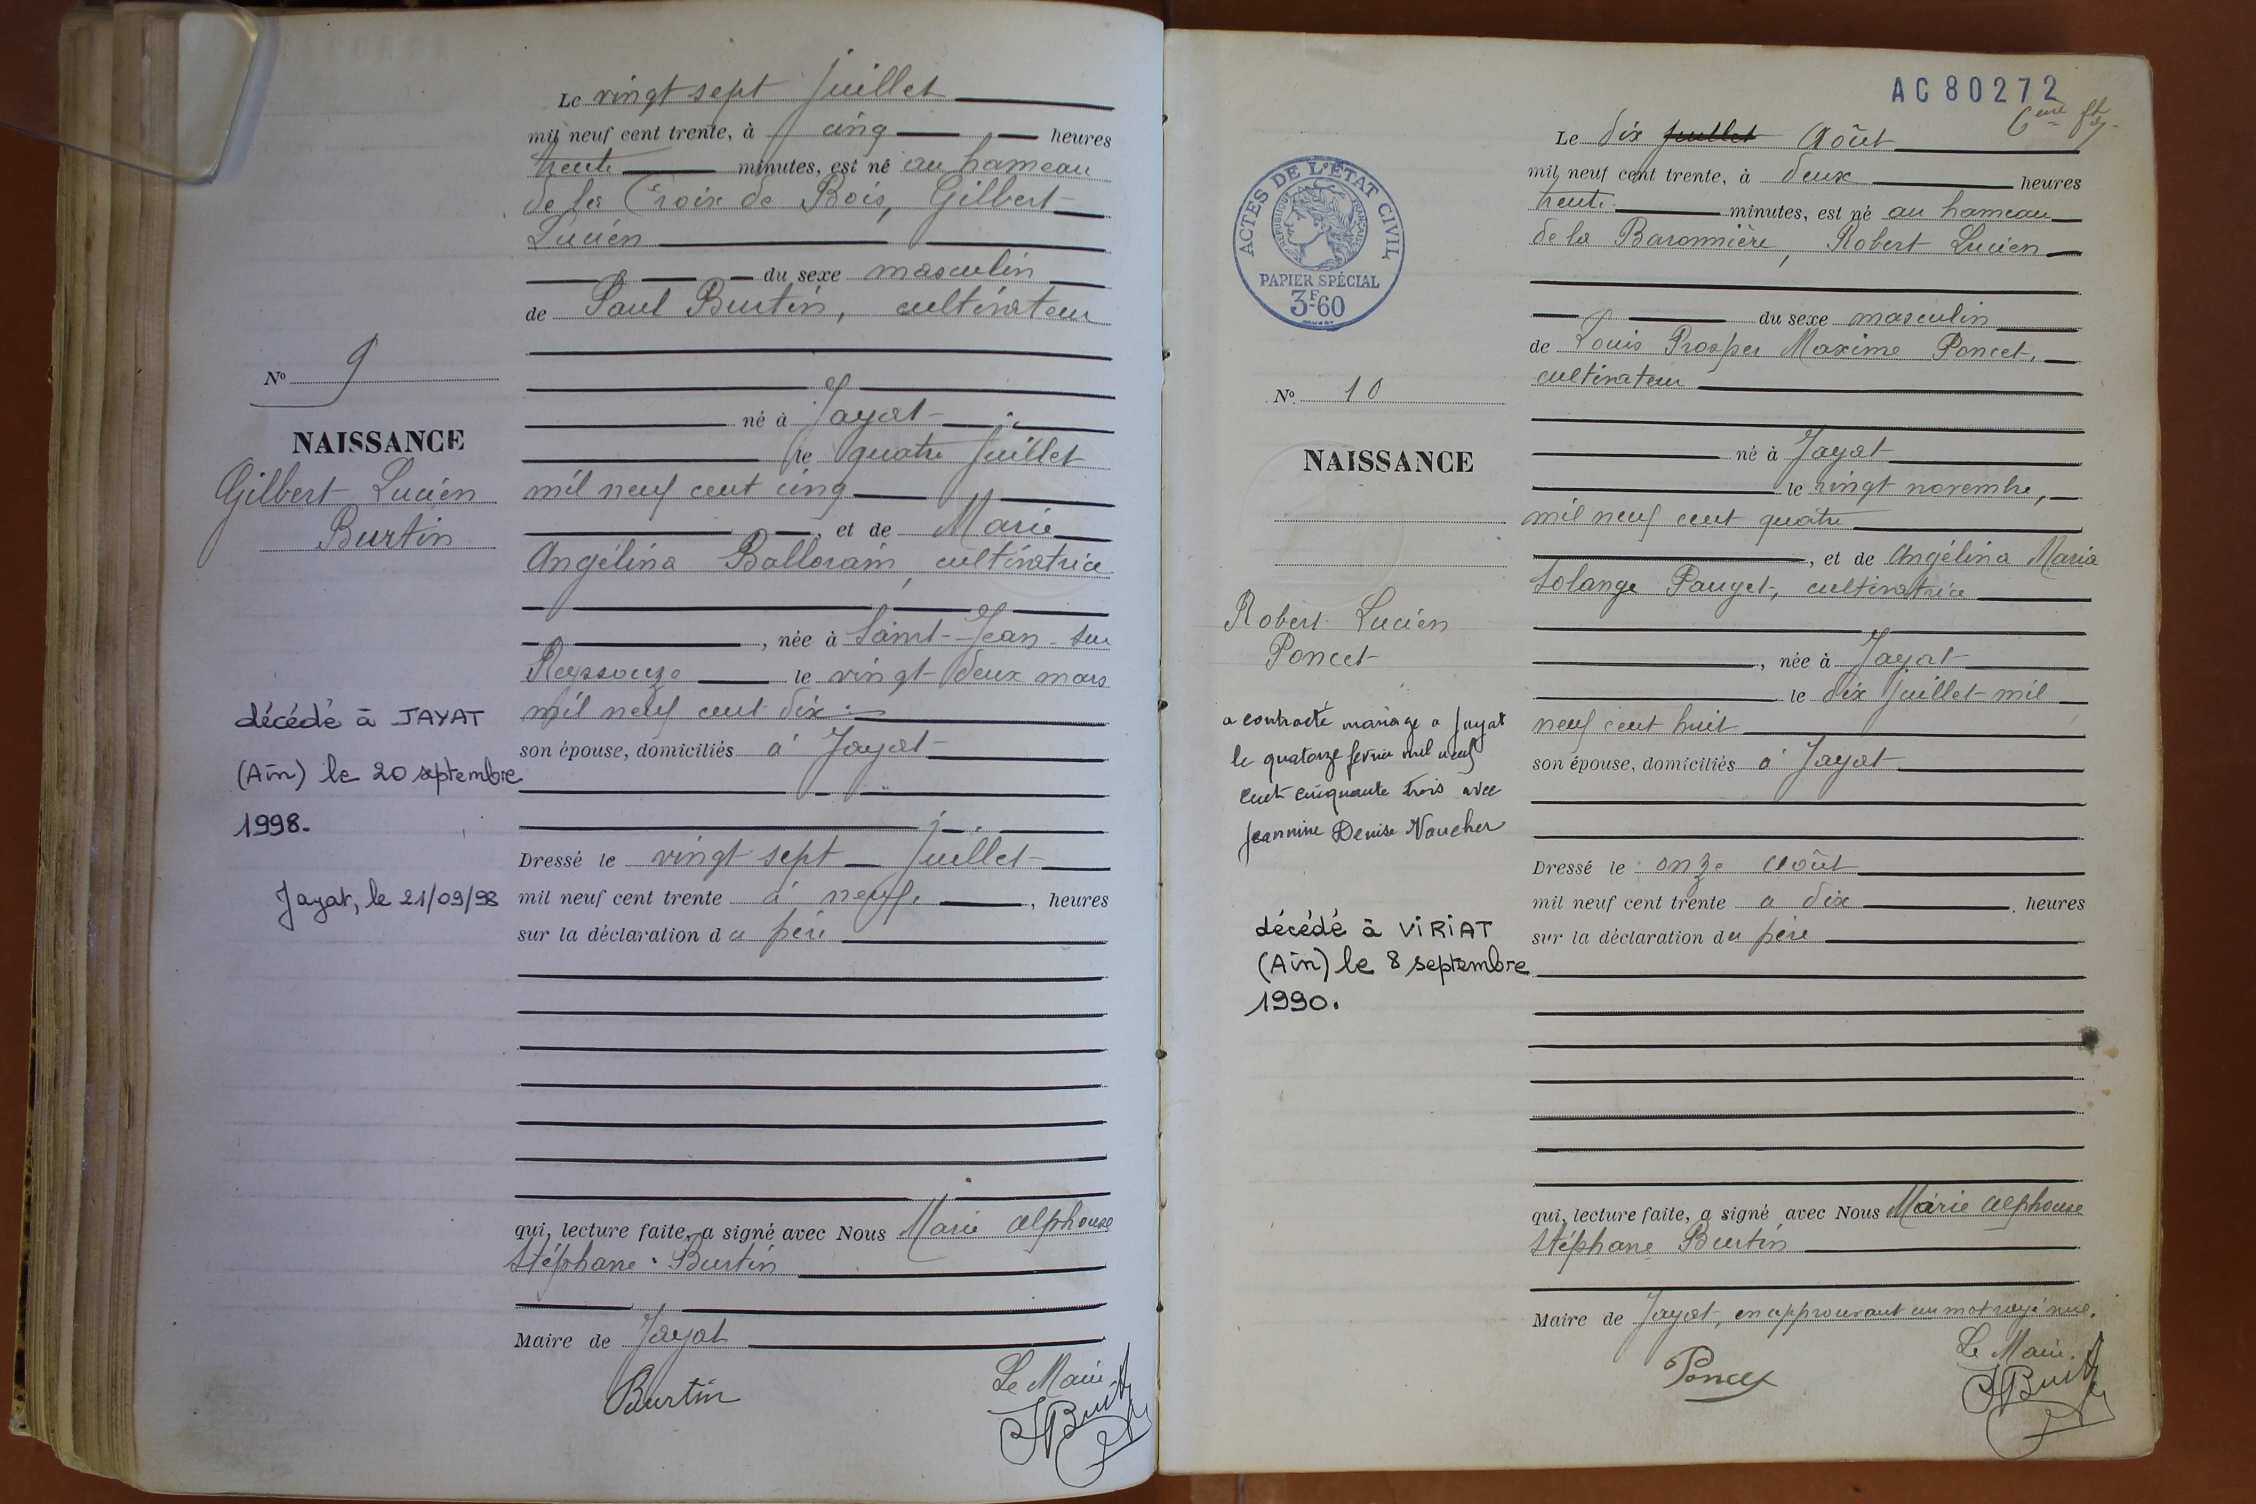 Le vingt sept Juillet
mil neuf cent trente, à cinq heures
trente minutes, est né au hameau
de la Croix de Bois, Gilbert
Lucien
du sexe masculin
de Paul Burtin, cultivateur
né à Jayat
le quatre Juillet
mil neuf cent cinq
et de Marie
Angélina Ballorain, cultivatrice
, née à Saint-Jean-sur
Reyssouze le vingt deux mars
mil neuf cent dix
son épouse, domiciliés à Jayat
Dressé le vingt sept Juillet
mil neuf cent trente à neuf, heures
sur la déclaration du père
qui, lecture faite, a signé avec Nous Marie Alphonse
Stéphane Burtin
Maire de Jayat
Burtin
Le Maire
Nº 9
NAISSANCE
Gilbert Lucien
Burtin
décédé à JAYAT
(Ain) le 20 septembre
1998.
Jayat, le 21/09/98
AC 80272
Le dix juillet Août
mil neuf cent trente, à deux heures
trente minutes, est né au hameau
de la Baronnière, Robert Lucien
du sexe masculin
de Louis Prosper Maxime Poncet,
cultivateur
né à Jayat
le vingt novembre,
mil neuf cent quatre
, et de Angélina Maria
Solange Pauget, cultivatrice
, née à Jayat
le dix juillet mil
neuf cent huit
son épouse, domiciliés à Jayat
Dressé le onze Août
mil neuf cent trente à dix heures
sur la déclaration du père
qui, lecture faite, a signé avec Nous Marie Alphonse
Stéphane Burtin
Maire de Jayat, en approuvant un mot rayé nul.
Poncet
Le Maire.
ACTES DE L'ÉTAT CIVIL
RÉPUBLIQUE FRANÇAISE
PAPIER SPÉCIAL
3F60
Nº 10
NAISSANCE
Robert Lucien
Poncet
a contracté mariage à Jayat
le quatorze février mil neuf
cent cinquante trois avec
Jeannine Denise Voucher
décédé à VIRIAT
(Ain) le 8 septembre
1990.